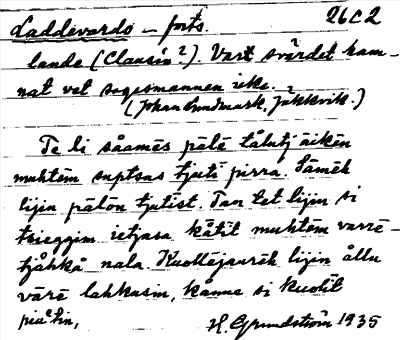 Laddevardo – forts. 26c2
lande (Clausin?). Vart svärdet ham-
nat vet sagesmannen icke.
(Johan Lundmark, Jäkkvik.)
Te li såamēs pälē tålutj äikēn
muhtēm suptsas tjuti pirra. Sāmēh
lijin pälōn tjutist. Tan tet lijin si
tsieggim ietjasa kåtit muhtēm varrē-
tjåhkå nala. Kuollējaurēh lijin ållu
värē lahkasin, kånnə si kuolit
piuʰtin,
H. Grundström 1935